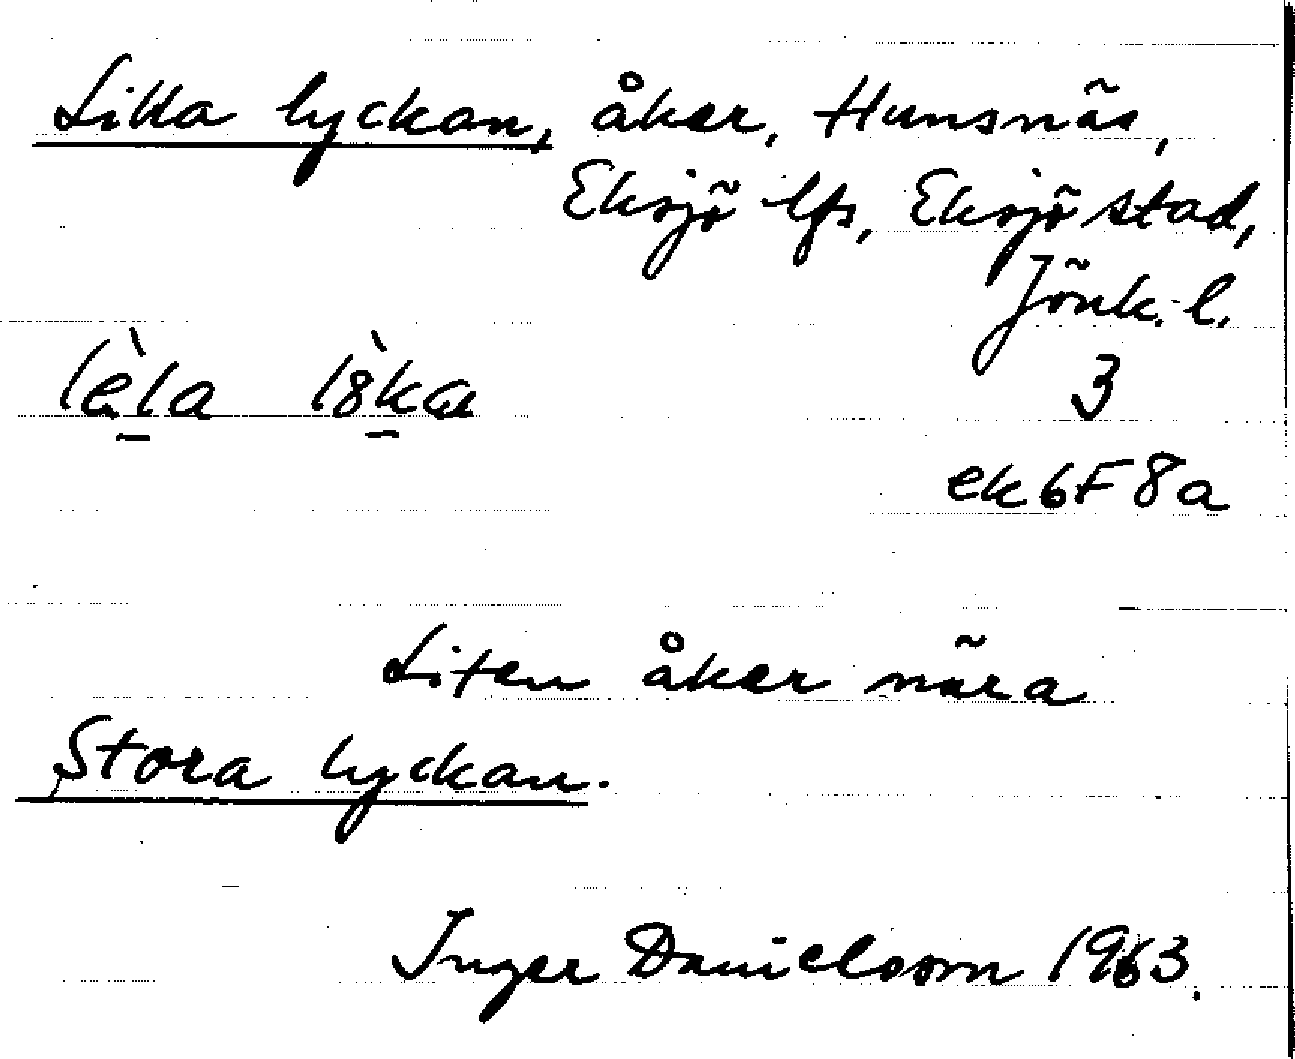 Lilla lyckan, åker, Hunsnäs,
Eksjö lfs, Eksjö stad,
Jönk. l.
lèla l8̀ka
3
ek6F8a
Liten åker nära
Stora lyckan.
Inger Danielsson 1963.